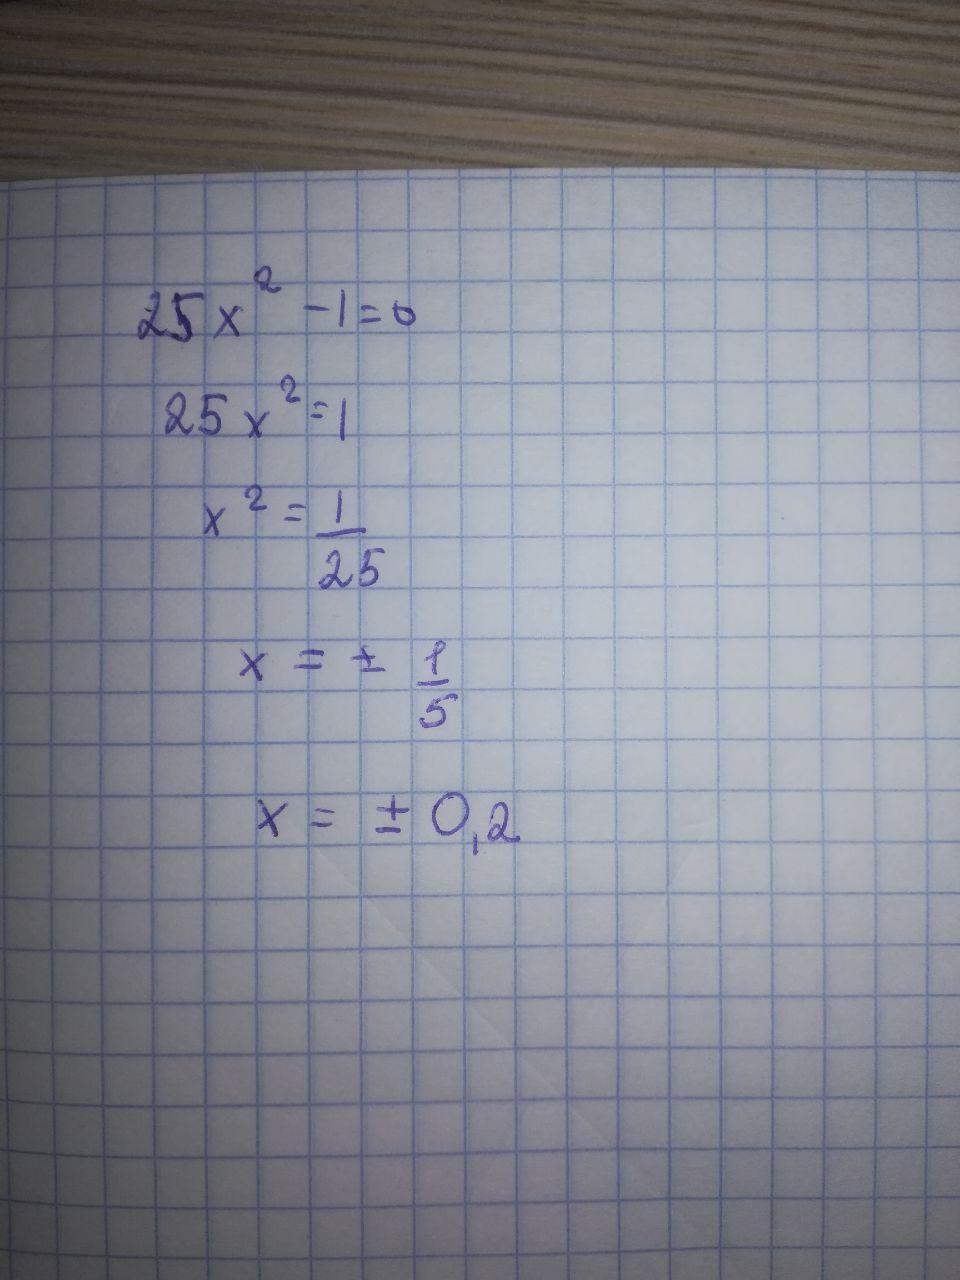 25x² -1=0
25x²=1
x² = 1/25
x = ± 1/5
x = ± 0,2